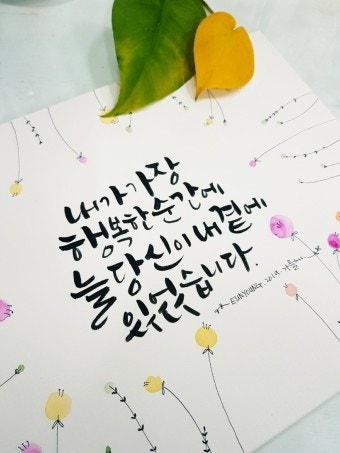 내가 가장
행복한 순간에
늘 당신이 내 곁에
있었습니다.
EUNYOUNG. 2019. 가을에